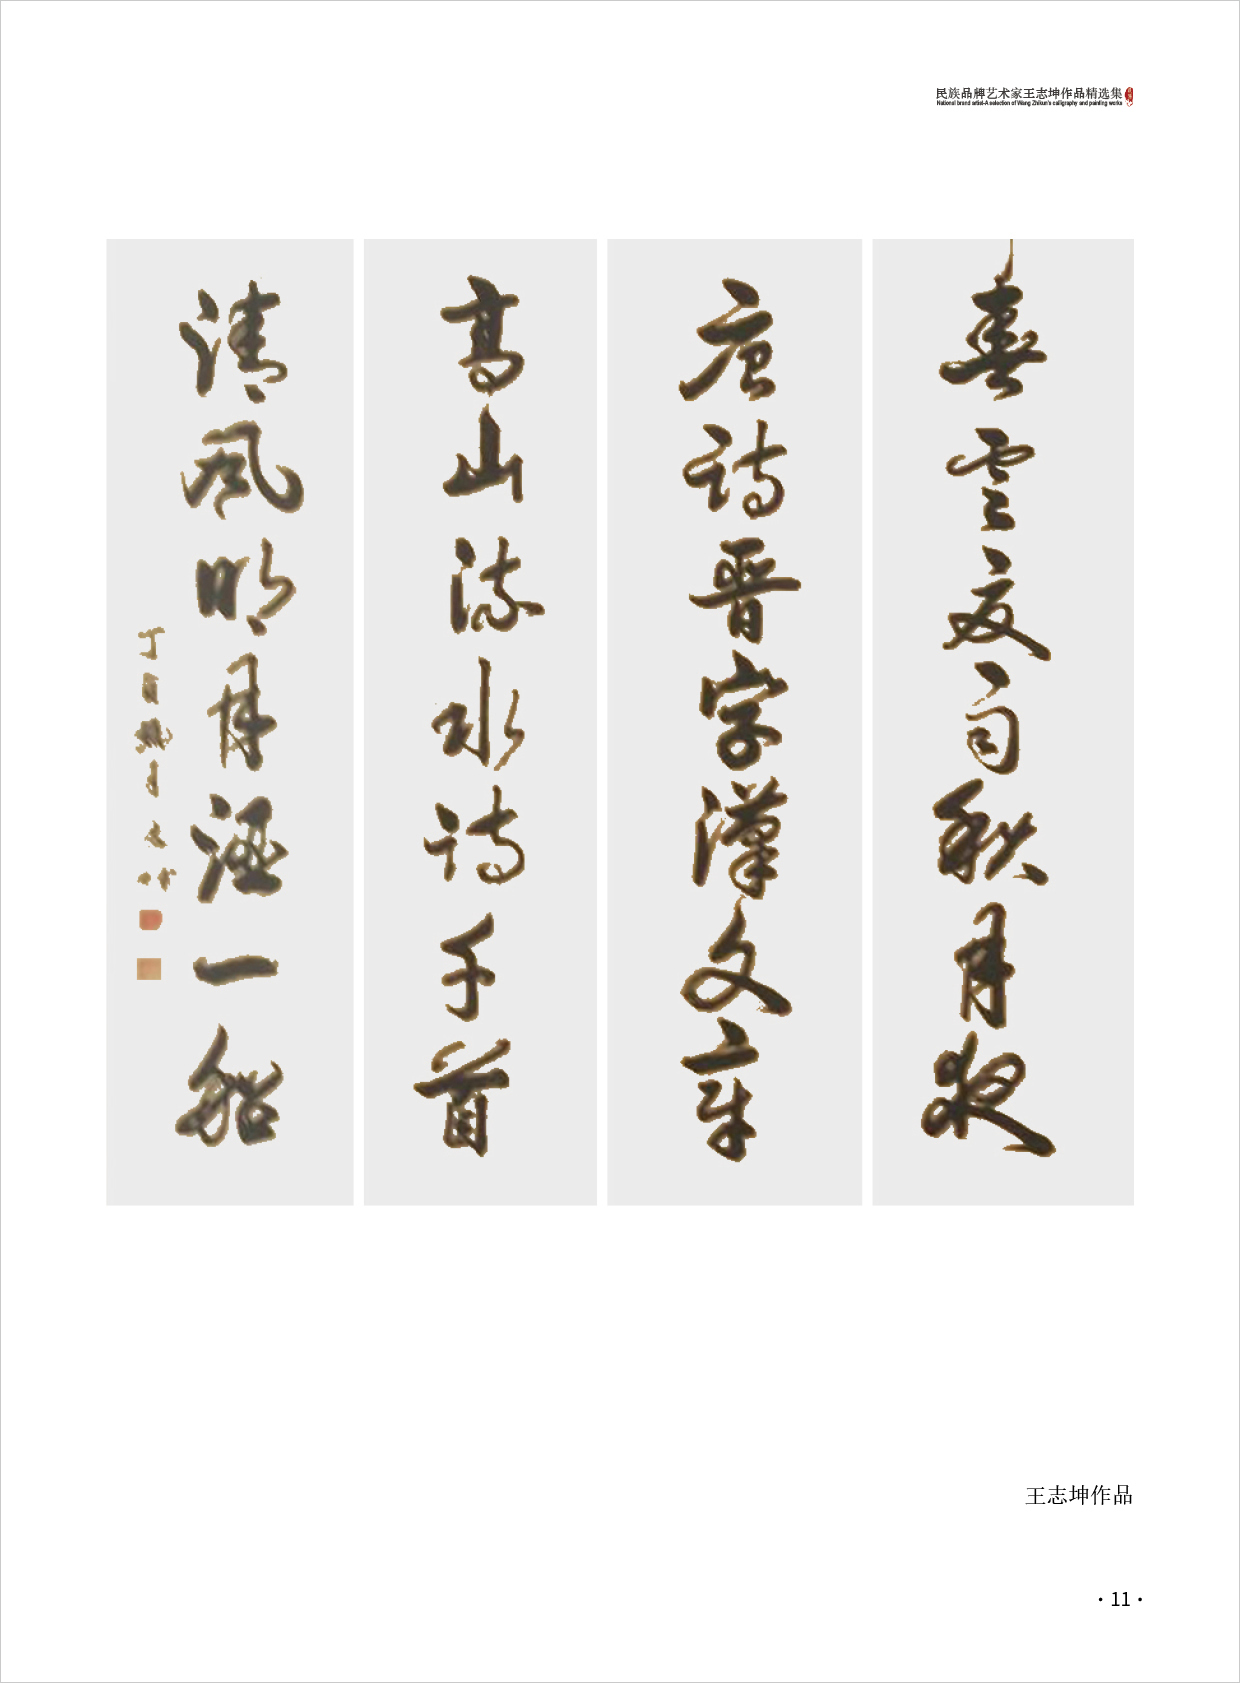 民族品牌艺术家王志坤作品精选集
National brand artist-A selection of Wang Zhikun's calligraphy and painting works
春雲夏雨秋月夜
唐詩晋字漢文章
高山流水詩千首
清風明月酒一船
王志坤作品
·11·